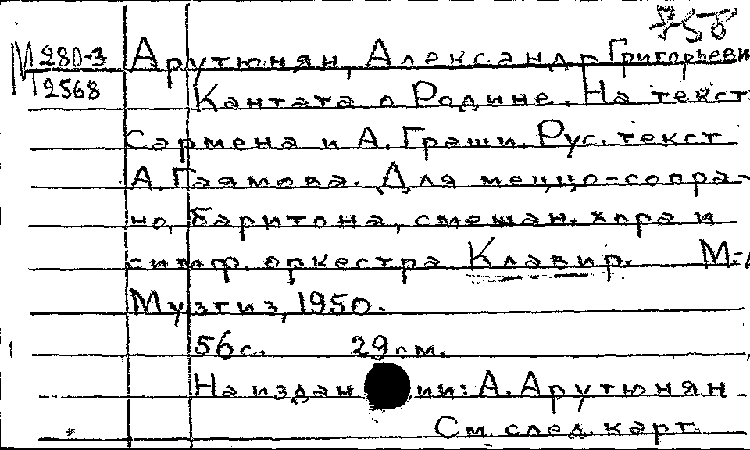 758
М 280-3
2568
Арутюнян, Александр Григорьеви
Кантата о Родине. На текст
Сармена и А. Граши. Рус. текст
А. Гаямова. Для меццо-сопра-
но, баритона, смешан. хора и
симф. оркестра Клавир. М-
Музгиз, 1950.
56с. 29см.
На издан ии: А. Арутюнян
См. след. карт.